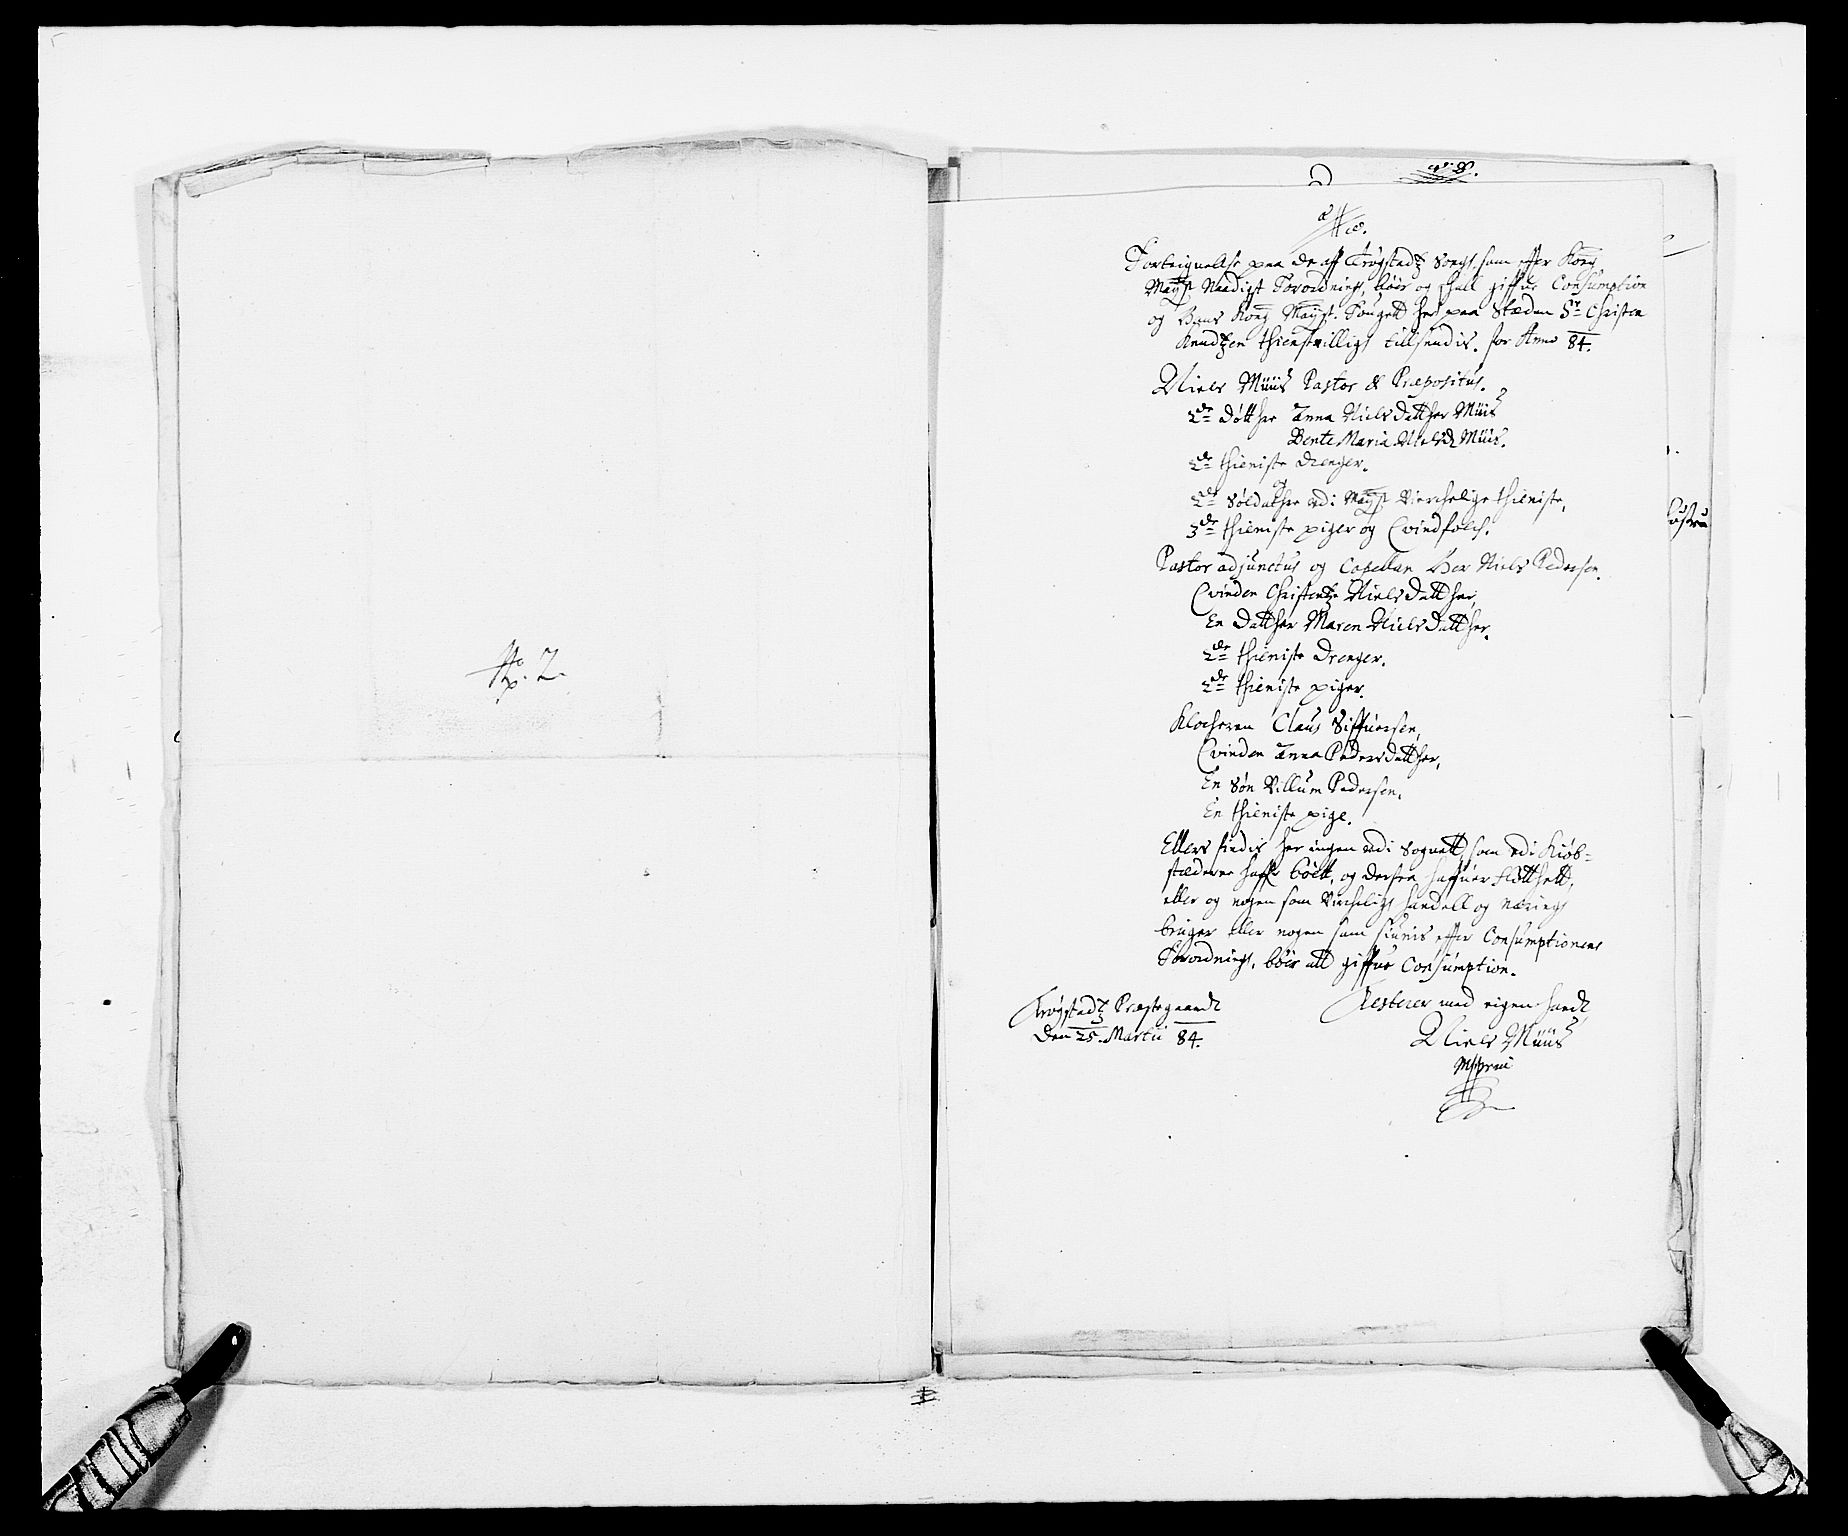 No. 2.
Forteignelse paa de aff Trøgstadtz Sogn, som effter Kong
Mayst Naadigst Forordning, bøer og schall giffue Consumption
og Hans Kong Mayst. Fougett her paa Stæden Sr Christen
Knudtzen thienstvilligt tillsendis. for Anno 84.
Niels Müüs Pastor & Præpositus.
2de Døtther Anna Nielsdatther Müüs
Bente Maria Nielsd Müüs.
2de thieniste drenger.
2de Soldather udi Mayst Virchelige thieniste,
3de thieniste piger og Qvindfolch.
Pastor adjunctus og Capellan Her Niels Pedersen
Qvinden Christentze Nielsdatther,
En datther Maren Nielsdatther.
2de thieniste Drenger.
2de thieniste piger.
Klocheren Claus Siffuersen,
Qvinden Anna Pedersdatther,
En Søn Villum Pedersen,
En thieniste pige.
Ellers findis her ingen udi Sognett, som udi Kiøb-
stæderne haffr boett, og derfra haffuer flötthett,
eller og nogen som Vircheligt handell og næring
bruger eller nogen som siunis effter Consumptionens
Forordning, bøer att giffue Consumption.
Trøgstadtz Præstegaardt
Den 25. Martii 84.
Testerer med eigen handt
Niels Müüs
Mppria